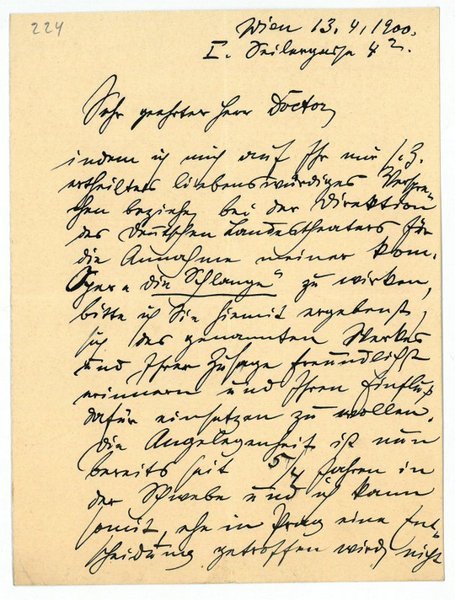 224
Wien 13. 4. 1900.
I. Seilergasse 4
Sehr geehrter Herr Doctor,
indem ich mich auf Ihr mir s. Z.
ertheiltes liebenswürdiges Verspre-
chen beziehe, bei der Direktion
des Deutschen Landestheaters für
die Annahme meiner kom.
Oper „die Schlange“ zu wirken,
bitte ich Sie hiemit ergebenst,
sich des genannten Werkes
und Ihrer Zusage freundlichst
erinnern und Ihren Einfluß
dafür einsetzen zu wollen.
Die Angelegenheit ist nun
bereits seit 5/4 Jahren in
der Schwebe und ich kann
somit, ehe in Prag eine Ent-
scheidung getroffen wird, nicht